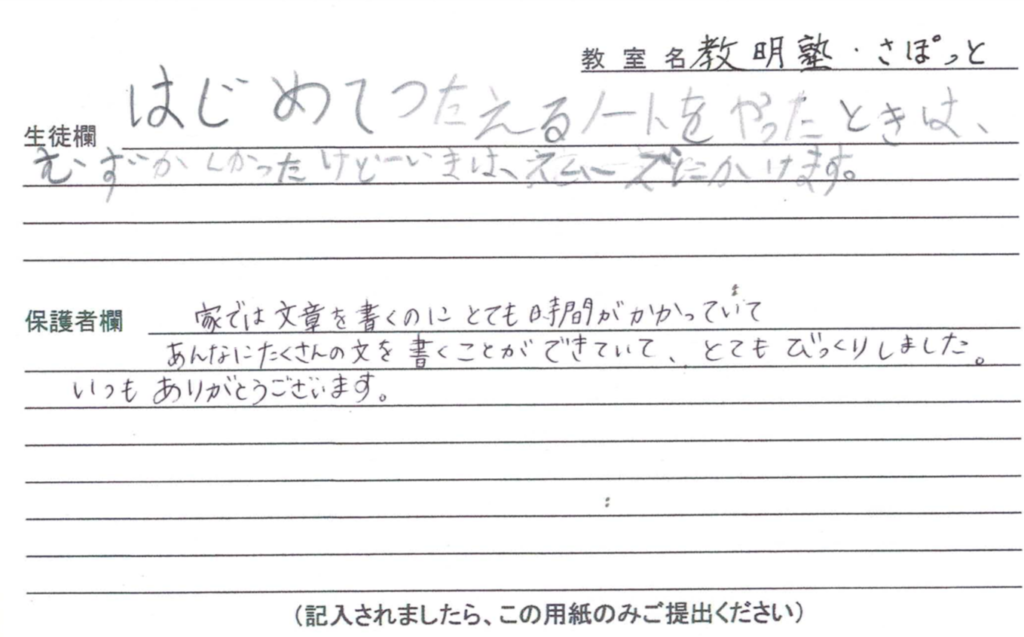 教室名 教明塾・さぽっと
生徒欄 はじめてつたえるノートをやったときは、
むずかしかったけどーいまは、スムーズにかけます。
保護者欄 家では文章を書くのにとても時間がかかっていて
あんなにたくさんの文を書くことができていて、とてもびっくりしました。
いつもありがとうございます。
(記入されましたら、この用紙のみご提出ください)